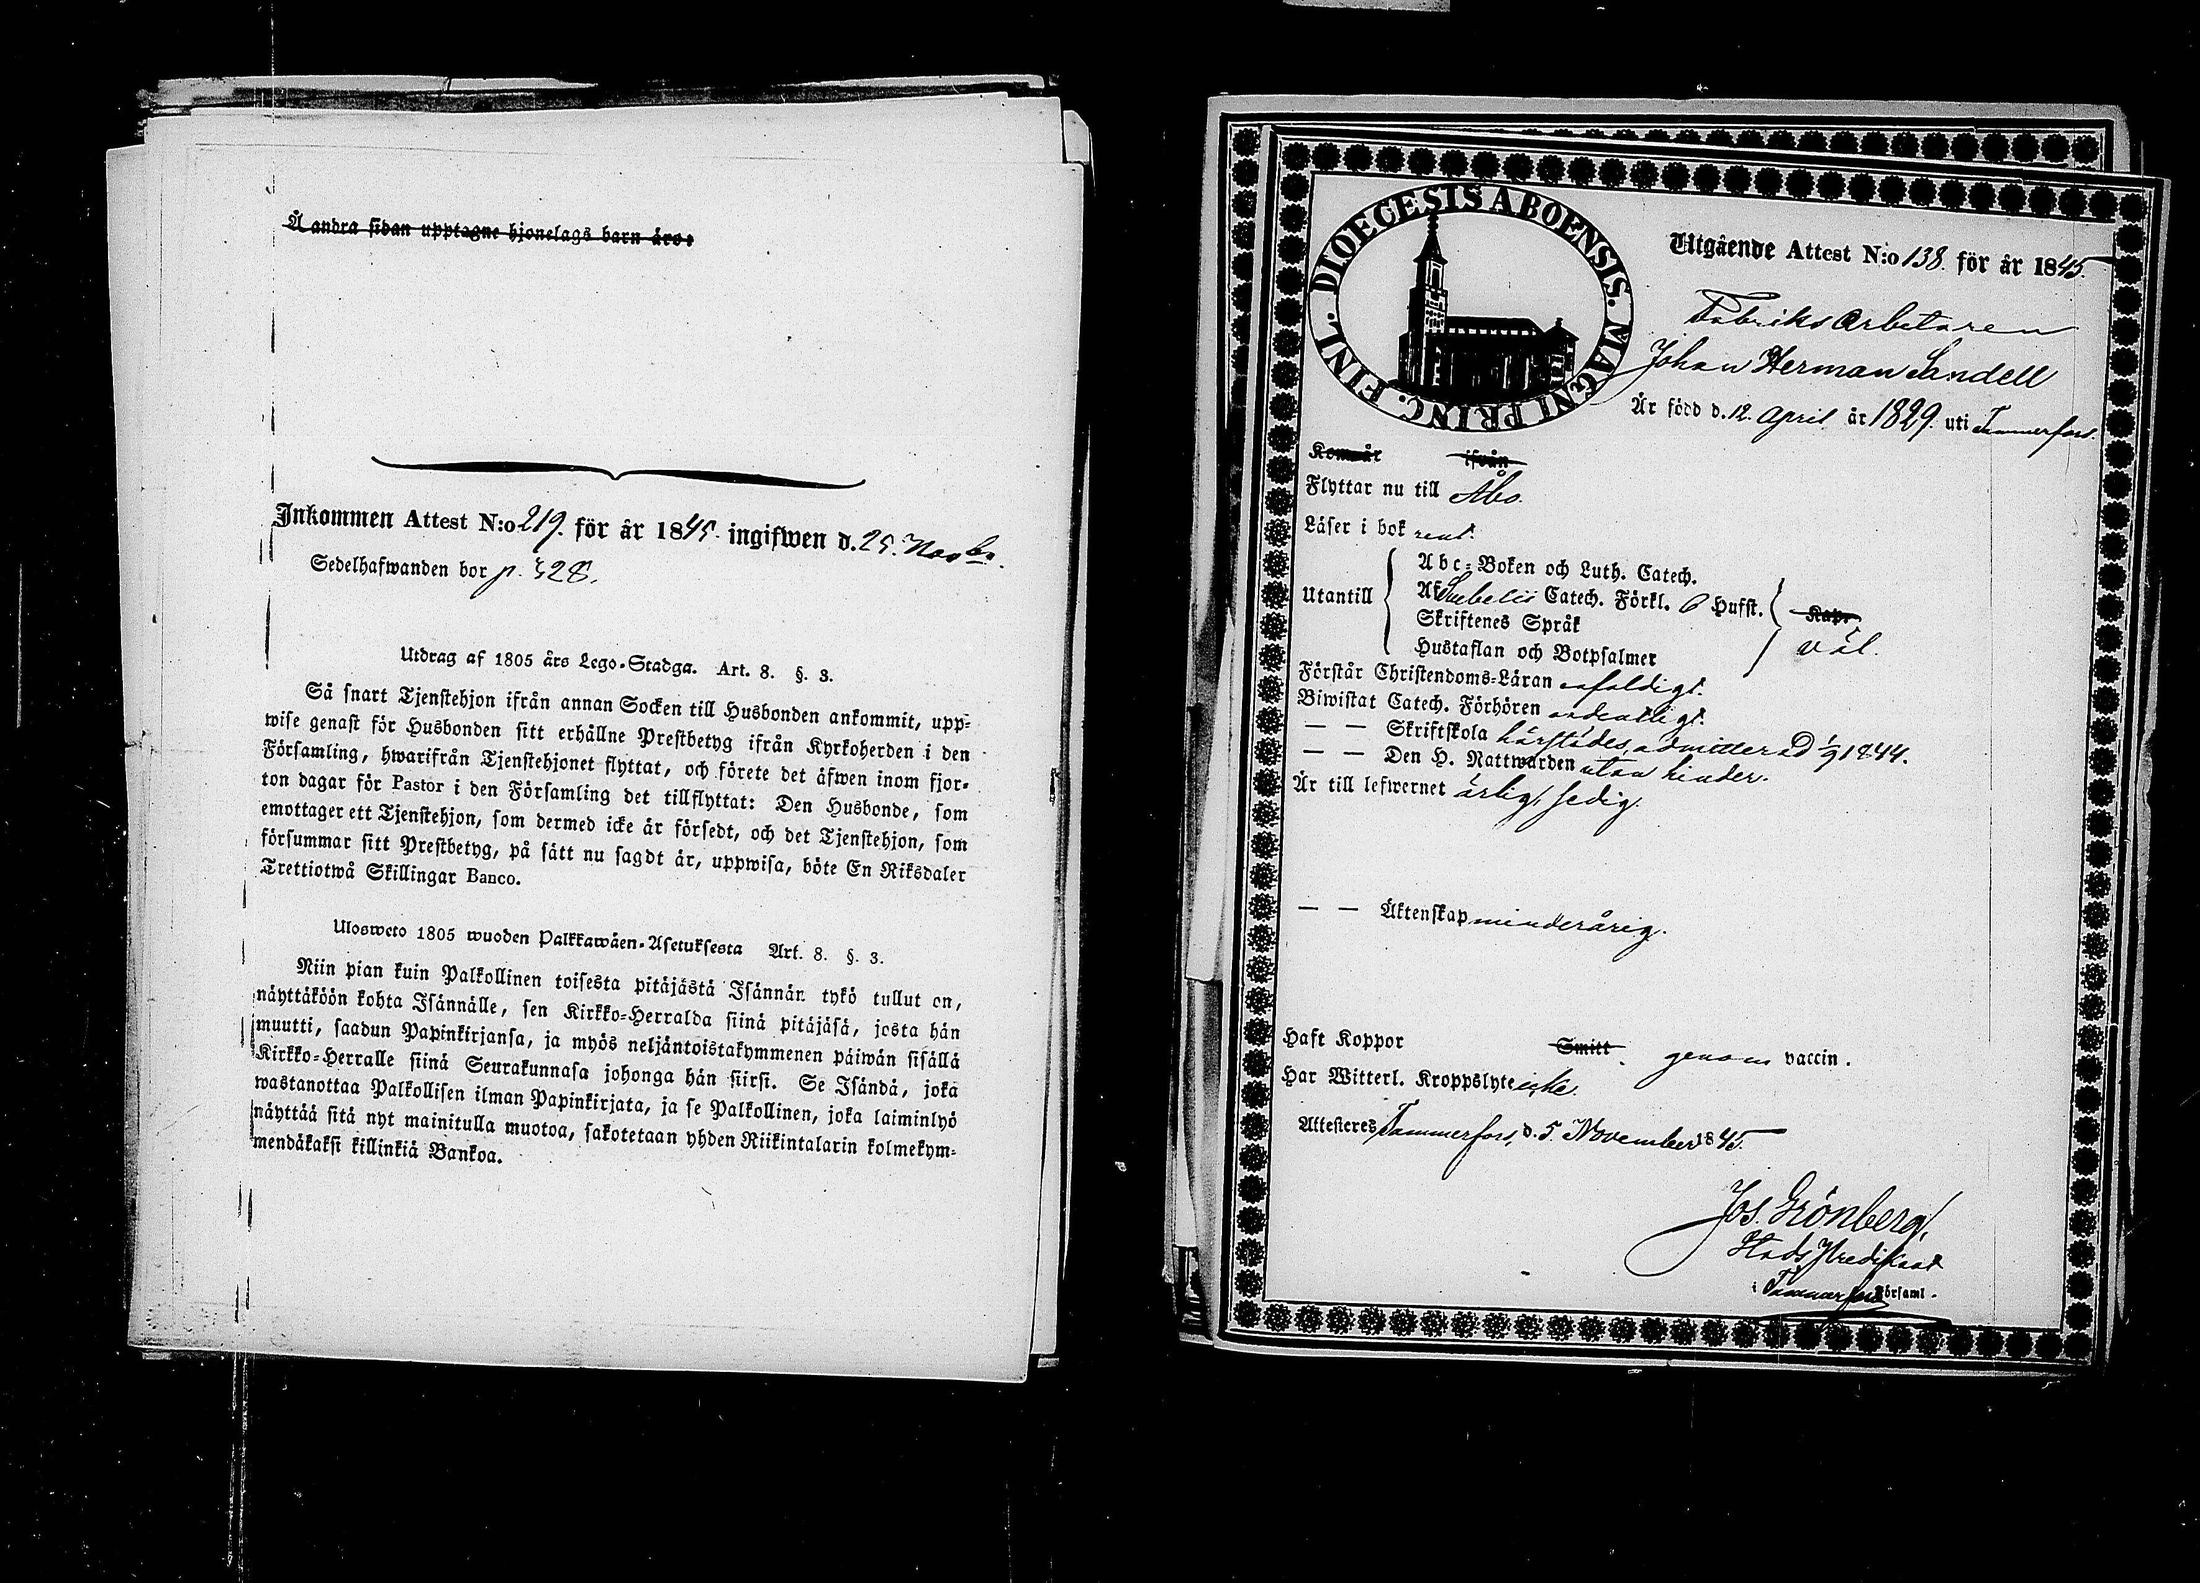 Å andra sidan upptagne hjonelags barn äro:
Inkommen Attest N:o 219. för år 1845. ingifwen d. 25. Novbr.
Sedelhafwanden bor p. 328.
Utdrag af 1805 års Lego-Stadga. Art. 8. §. 3.
Så snart Tjenstehjon ifrån annan Socken till Husbonden ankommit, upp-
wise genast för Husbonden sitt erhållne Prestbetyg ifrån Kyrkoherden i den
Församling, hwarifrån Tjenstehjonet flyttat, och förete det äfwen inom fjor-
ton dagar för Pastor i den Församling det tillflyttat: Den Husbonde, som
emottager ett Tjenstehjon, som dermed icke är försedt, och det Tjenstehjon, som
försummar sitt Prestbetyg, på sätt nu sagdt är, uppwisa, böte En Riksdaler
Trettiotwå Skillingar Banco.
Ulosweto 1805 wuoden Palkkawäen-Asetuksesta Art. 8. §. 3.
Niin pian kuin Palkollinen toisesta pitäjästä Isännän tykö tullut on,
näyttäköön kohta Isännälle, sen Kirkko-Herralda siinä pitäjäsä, josta hän
muutti, saadun Papinkirjansa, ja myös neljäntoistakymmenen päiwän sisällä
Kirkko-Herralle siinä Seurakunnasa johonga hän siirsi. Se Isändä, joka
wastanottaa Palkollisen ilman Papinkirjata, ja se Palkollinen, joka laiminlyö
näyttää sitä nyt mainitulla muotoa, sakotetaan yhden Riikintalarin kolmekym-
mendäkaksi killinkiä Bankoa.
DIOECESIS ABOENSIS. MAGNI PRINC. FINL.
Utgående Attest N:o 138. för år 1845.
Fabriks arbetaren
Johan Herman Sandell
Är född d. 12. April år 1829. uti Tammerfors.
Kom år ifrån
Flyttar nu till Åbo.
Läser i bok rent.
Abc-Boken och Luth. Catech.
Utantill Af Svebelii Catech. Förkl. Hufst. Kap.
Skriftenes Språk
väl.
Hustaflan och Botpsalmer
Förstår Christendoms-Läran enfaldigt.
Biwistat Catech. Förhören ordentligt
— — Skriftskola härstädes, admitterad 1/9 1844.
— — Den H. Nattwarden utan hinder.
Är till lefwernet ärligt, sedig.
— — Äktenskap minderårig.
Haft Koppor Smitt. genom vaccin.
Har Witterl. Kroppslyte icke.
Attesteres Tammerfors, d. 5. November 1845.
Jos. Grönberg,
Stads Predikant
i Tammerfors Församl.